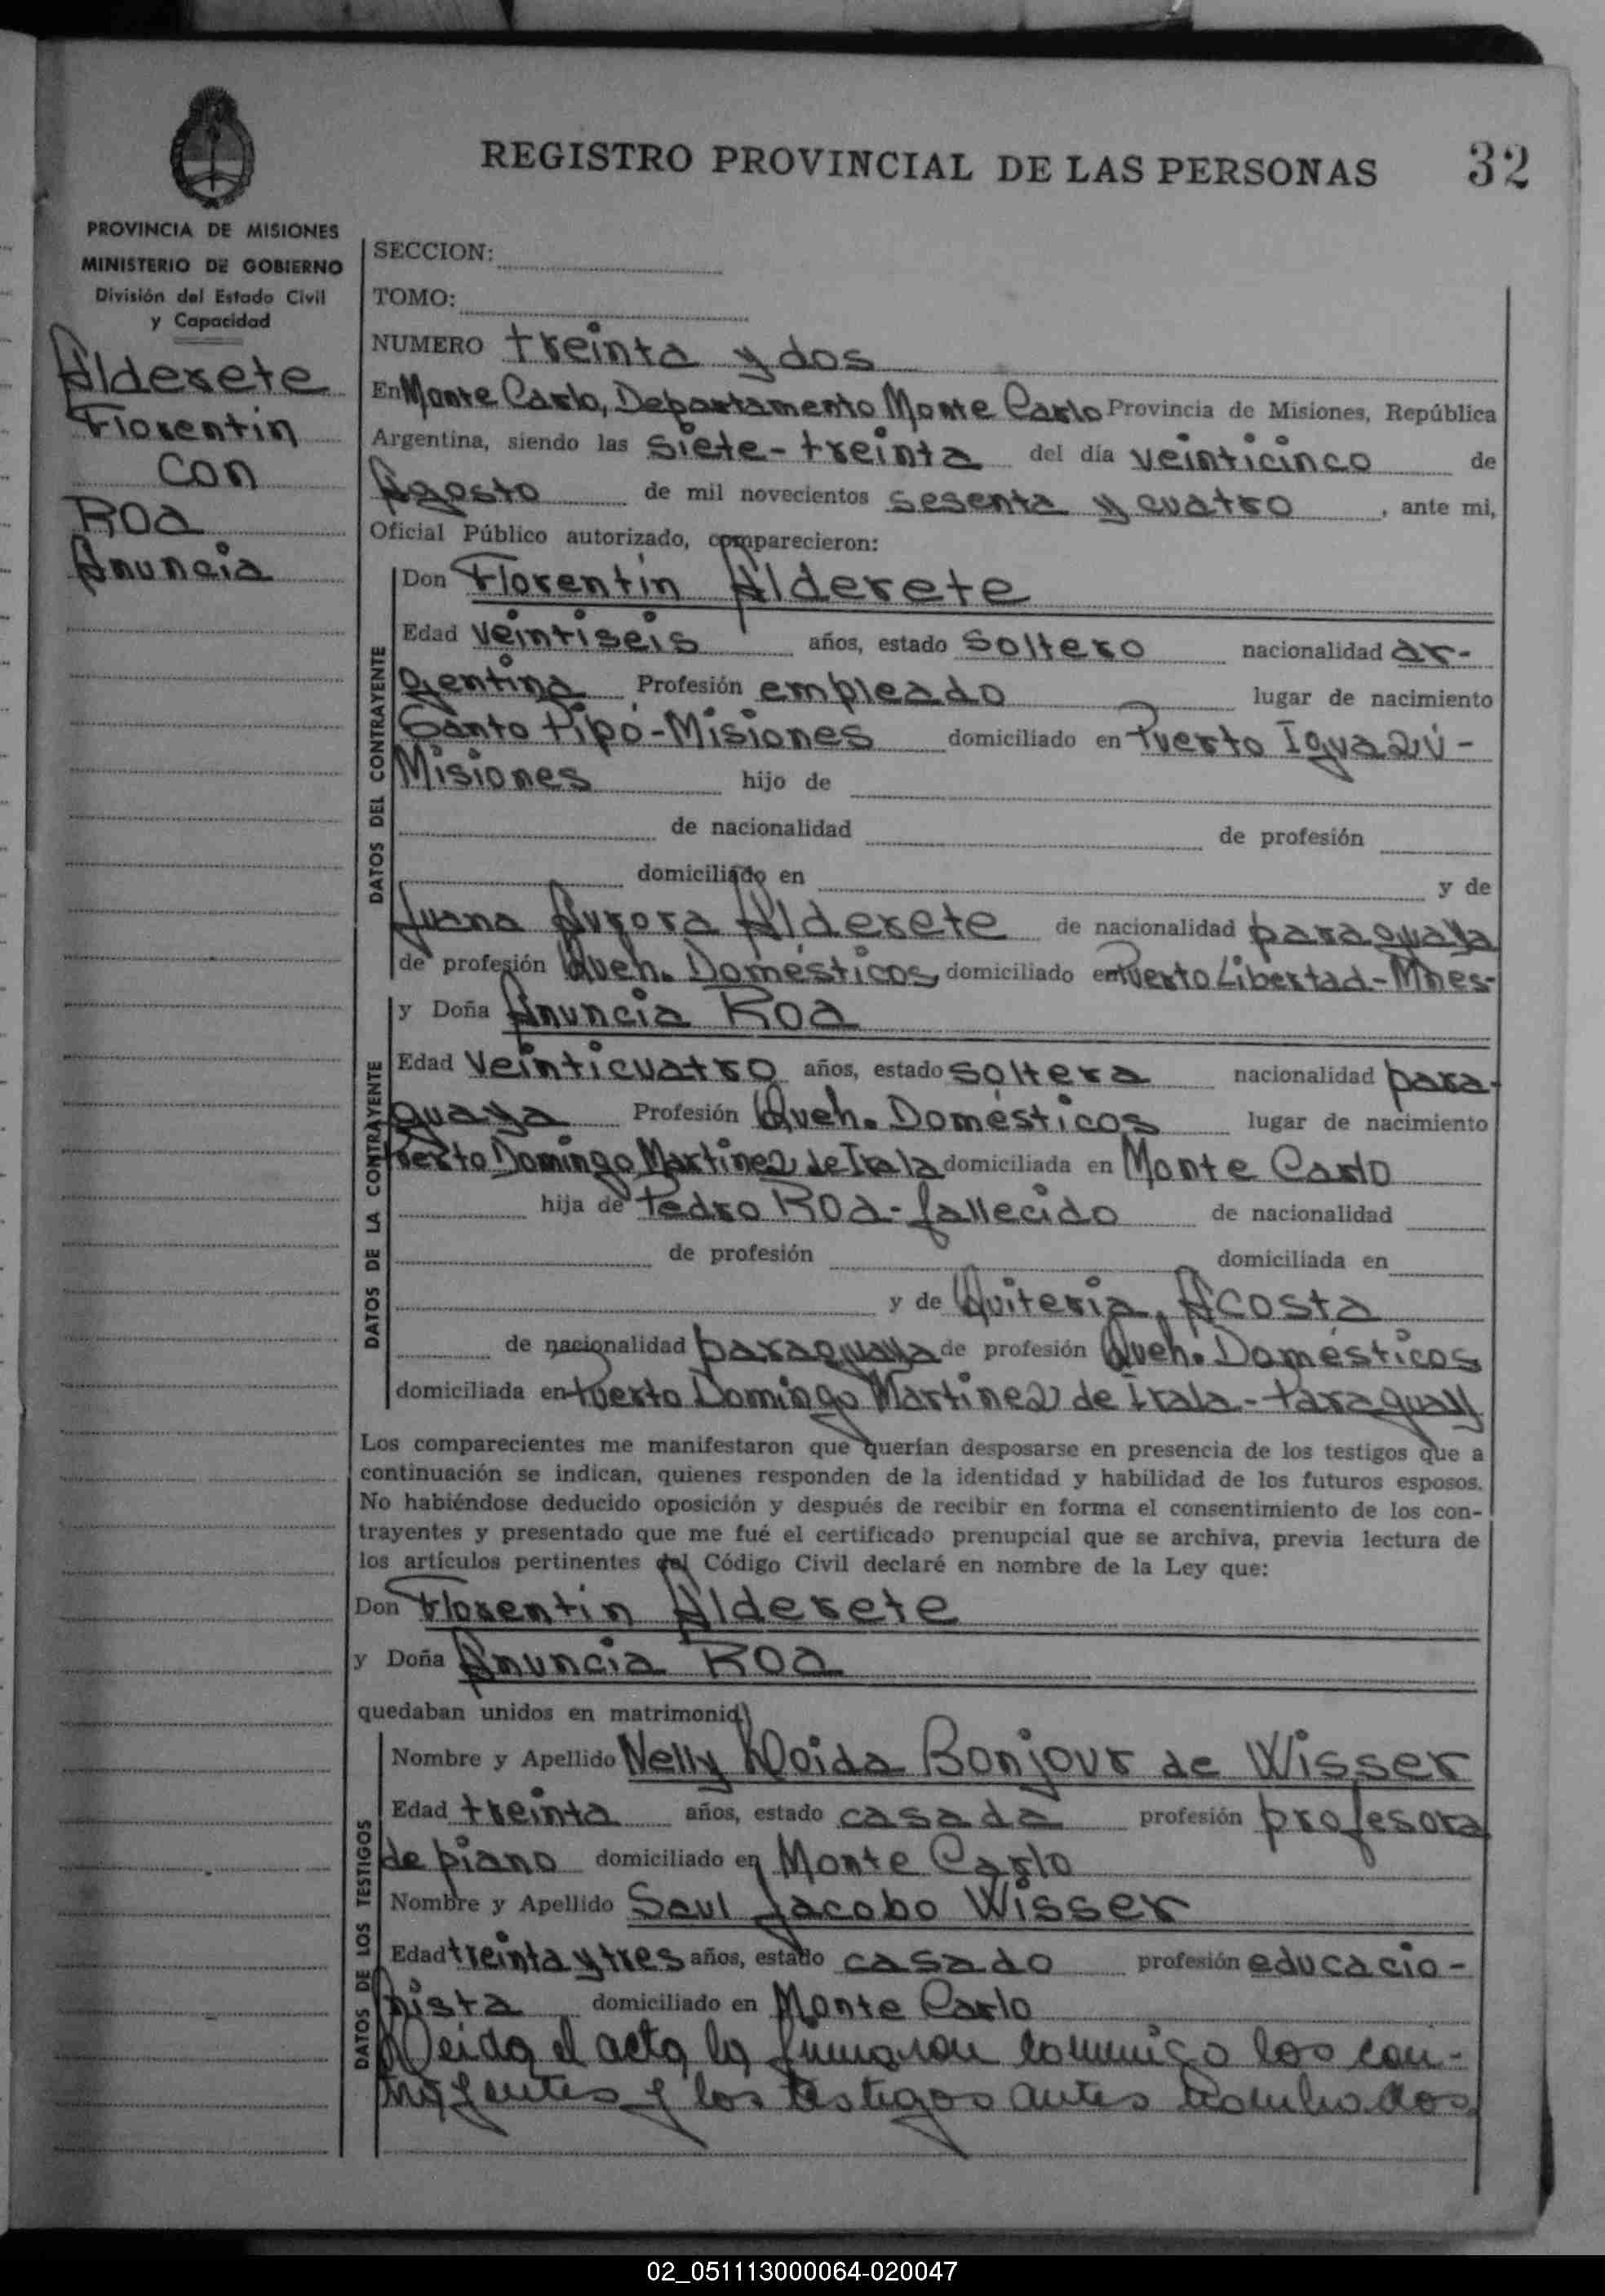 REGISTRO PROVINCIAL DE LAS PERSONAS 32
PROVINCIA DE MISIONES
MINISTERIO DE GOBIERNO
División del Estado Civil
y Capacidad
Alderete
Florentín
con
Roa
Anuncia
SECCION:
TOMO:
NUMERO treinta y dos
En Monte Carlo, Departamento Monte Carlo Provincia de Misiones, República
Argentina, siendo las siete-treinta del día veinticinco de
Agosto de mil novecientos sesenta y cuatro, ante mi,
Oficial Público autorizado, comparecieron:
DATOS DEL CONTRAYENTE
Don Florentín Alderete
Edad veintiseis años, estado soltero nacionalidad ar-
gentina Profesión empleado lugar de nacimiento
Santo Pipó-Misiones domiciliado en Puerto Iguazú-
Misiones hijo de
de nacionalidad de profesión
domiciliado en y de
Juana Aurora Alderete de nacionalidad paraguaya
de profesión Queh. Domésticos domiciliado en Puerto Libertad-Mnes-
DATOS DE LA CONTRAYENTE
y Doña Anuncia Roa
Edad veinticuatro años, estado soltera nacionalidad para-
guaya Profesión Queh. Domésticos lugar de nacimiento
Puerto Domingo Martínez de Irala domiciliada en Monte Carlo
hija de Pedro Roa-fallecido de nacionalidad
de profesión domiciliada en
y de Quiteria Acosta
de nacionalidad paraguaya de profesión Queh. Domésticos
domiciliada en Puerto Domingo Martínez de Irala-Paraguay
Los comparecientes me manifestaron que querían desposarse en presencia de los testigos que a
continuación se indican, quienes responden de la identidad y habilidad de los futuros esposos.
No habiéndose deducido oposición y después de recibir en forma el consentimiento de los con-
trayentes y presentado que me fué el certificado prenupcial que se archiva, previa lectura de
los artículos pertinentes del Código Civil declaré en nombre de la Ley que:
Don Florentín Alderete
y Doña Anuncia Roa
quedaban unidos en matrimonio
DATOS DE LOS TESTIGOS
Nombre y Apellido Nelly Noida Bonjour de Wisser
Edad treinta años, estado casada profesión profesora
de piano domiciliado en Monte Carlo
Nombre y Apellido Saul Jacobo Wisser
Edad treinta y tres años, estado casado profesión educacio-
nista domiciliado en Monte Carlo
Leída el acta, la firmaron conmigo los con-
trayentes y los testigos antes nombrados
02_051113000064-020047